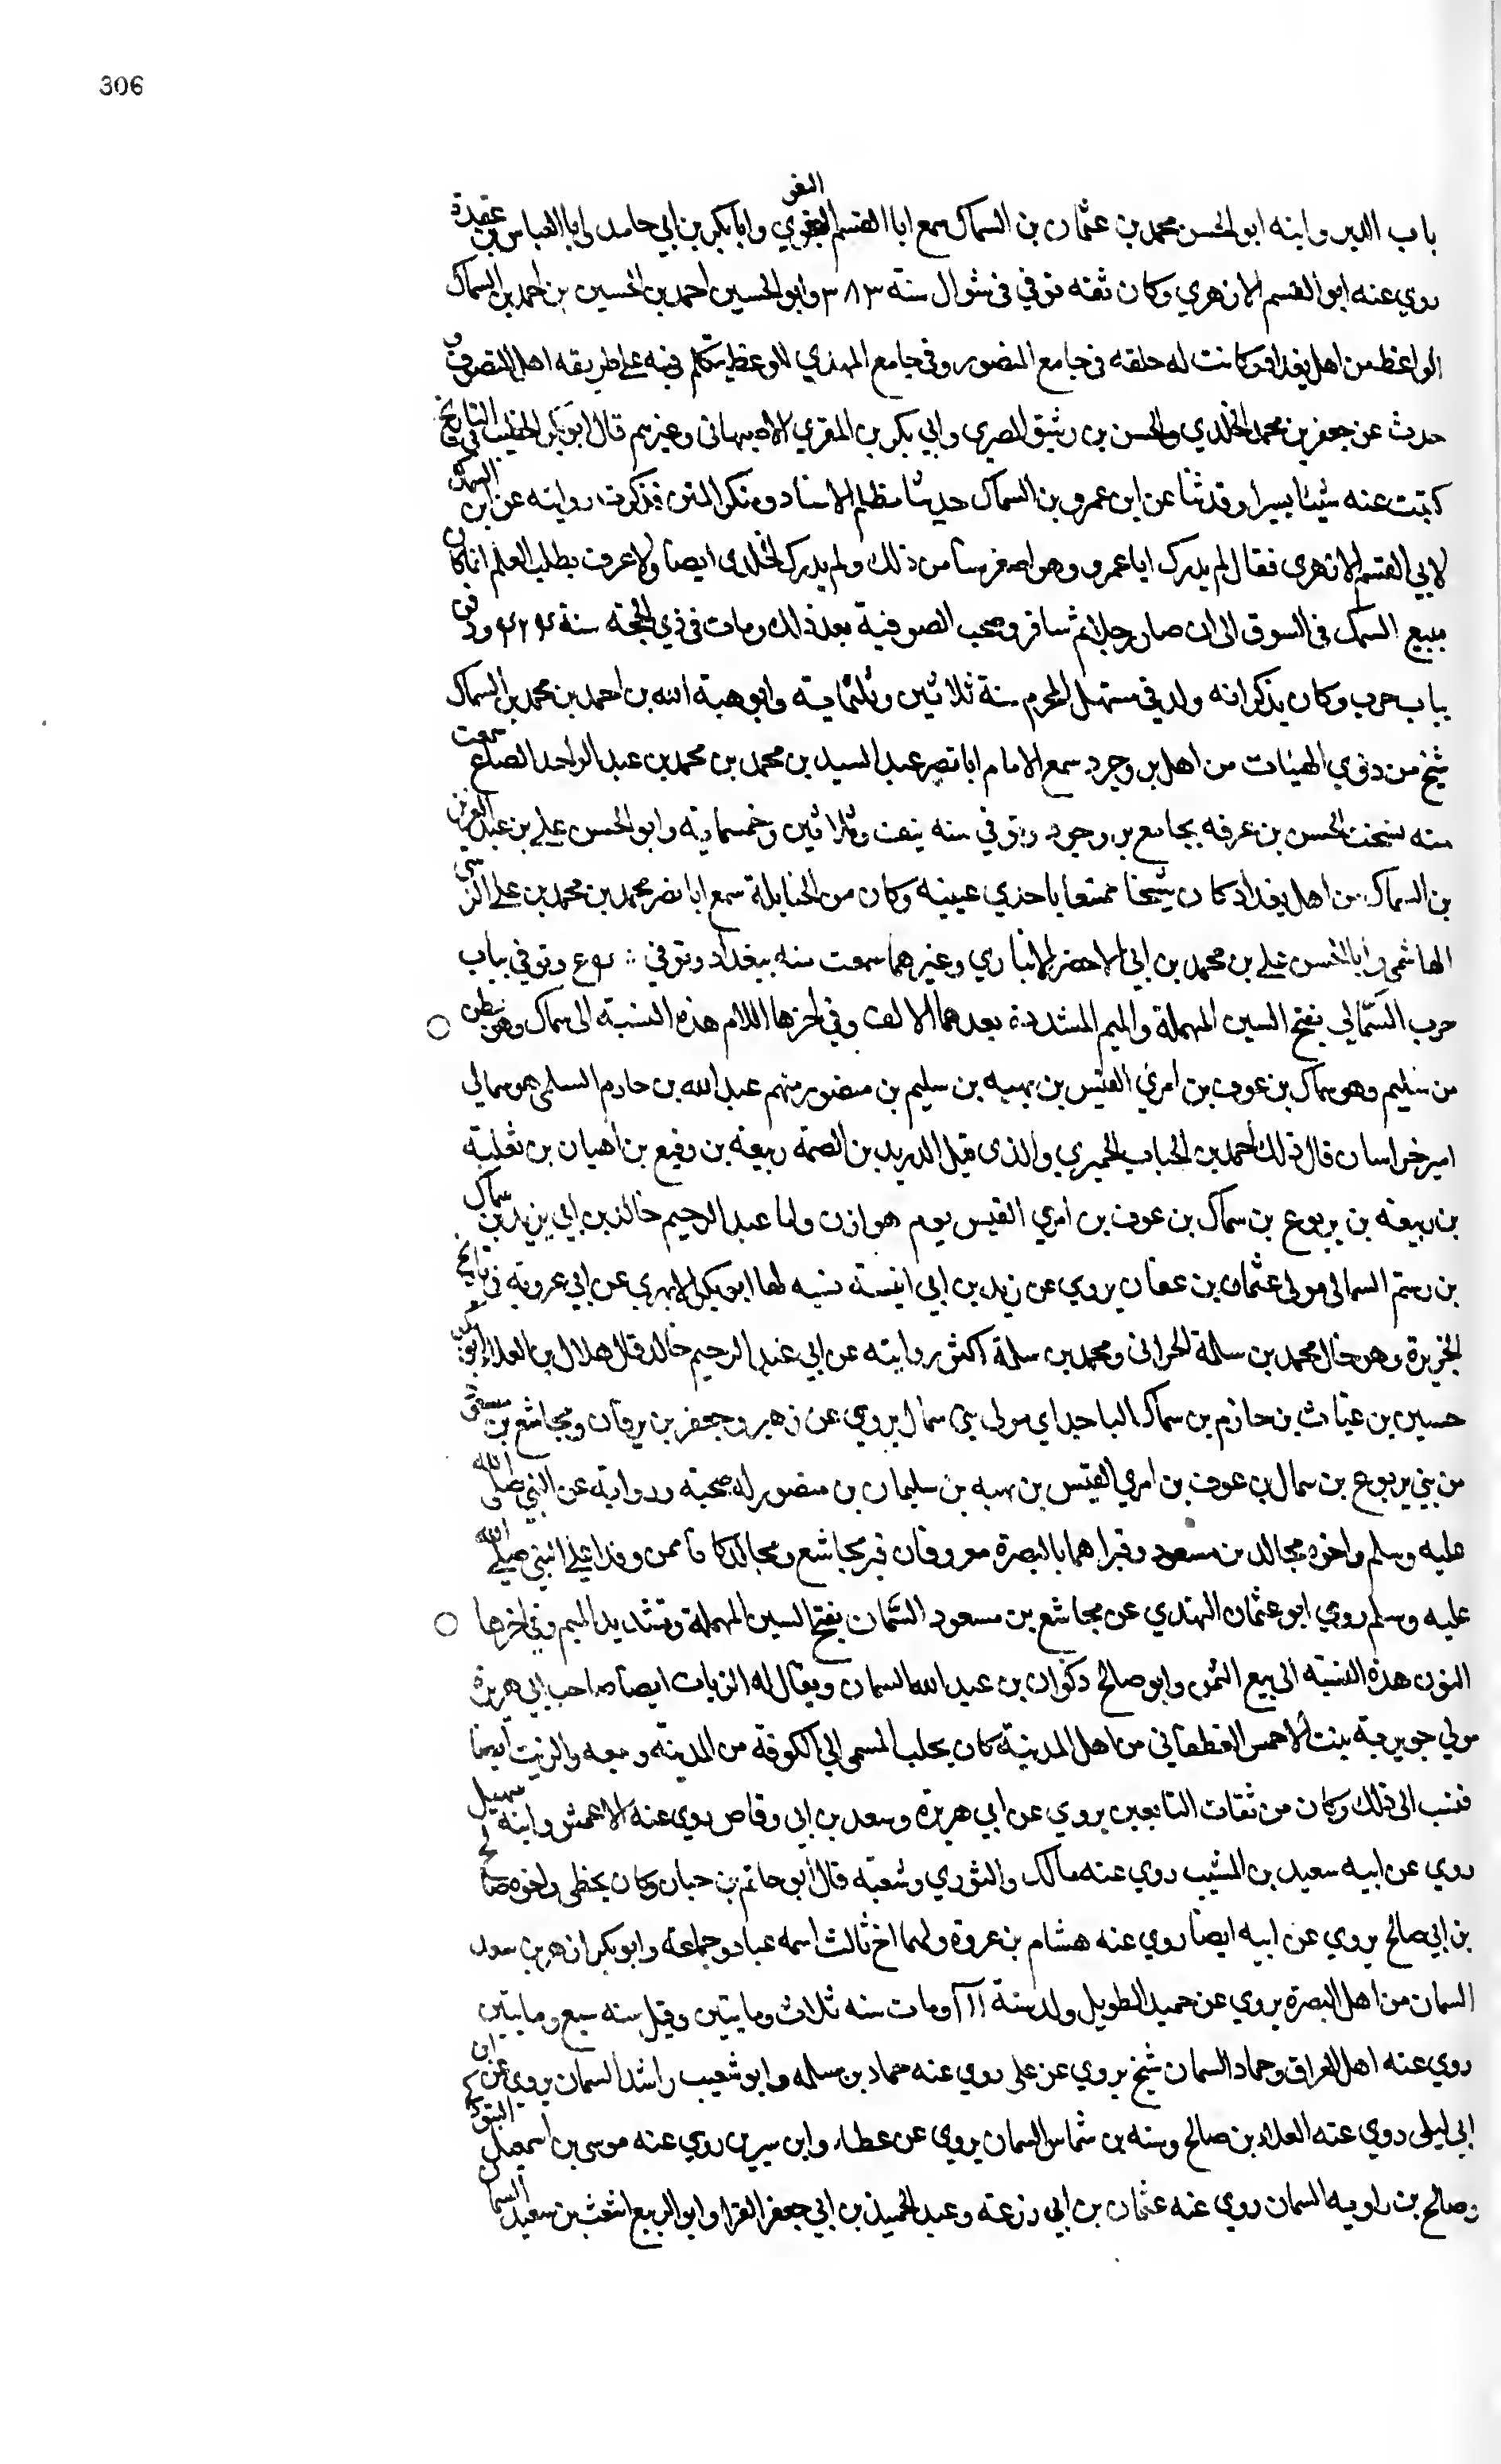 306
البغو
باب الدير وابنه ابو الحسن محمد بن عثمان بن السماك سمع ابا القسم البغوي وابا بكر بن ابي حامد وابا العباس بن عقدة
روي عنه ابو القسم الازهري وكان ثقه توفي في شوال سنة ٣٨٣ وابو الحسين احمد بن الحسين بن احمد بن السماك
الواعظ من اهل بغداد وكانت له حلقه في جامع المنصور وفي جامع المهدي للوعظ يتكلم فيه على طريقه اهل التصوف و
حدث عن جعفر بن محمد الخلدي والحسن بن رشيق المصري وابي بكر بن المقري الاصبهاني وغيرهم قال ابو بكر الخطيب في التاريخ
كتبت عنه شيئا يسيرا وقد ثنا عن ابن عمرو بن السماك حديثا مظلم الاسناد منكر المتن فذكرت روايته عن بن السماك
لابي القسم الازهري فقال لم يدرك ابا عمرو وهو اصغر سنا من ذلك ولم يدرك الخلدي ايضا ولا عرف بطلب العلم انما كان
يبيع السمك في السوق الى ان صار رجلا ثم سافر وصحب الصوفية بعد ذلك ومات في ذي الحجة سنة ٤٢٤ ودفن
بباب حرب وكان يذكر انه ولد في مستهل المحرم سنة ثلاثين وثلثماية وابو هبة الله بن احمد بن محمد بن السماك
شيخ من ذوي الهيئات من اهل بروجرد سمع الامام ابا نصر عبد السيد بن محمد بن محمد بن عبد الواحد الصباغ سمعت
منه نسخت الحسن بن عرفه بجامع بروجرد وتوفي سنه نيف وثلاثين وخمسماية وابو الحسن علي بن عبد العزيز
بن السماك من اهل بغداد كان شيخا ممتعا باحدي عينيه وكان من الحنابلة سمع ابا نصر محمد بن محمد بن علي الزينبي
الهاشمي وابا الحسن علي بن محمد بن ابي الاخضر الانباري وغيرهما سمعت منه ببغداد وتوفي وتوفي بباب
حرب السَّمَّالي بفتح السين المهملة والميم المشددة بعدهما الالف وفي اخرها اللام هذه النسبة الى سماك وهو بطن
من سليم وهو سماك بن عوف بن امرئ القيس بن بهيه بن سليم بن منصور منهم عبد الله بن حازم السلمي هو سمالي
امير خراسان قال ذلك احمد بن الحباب الحميري والذي قتل الدريد بن الصمه ربيعه بن رفيع بن اهبان بن ثعلبة
بن ربيعه بن يربوع بن سماك بن عوف بن امري القيس يوم هوازن واما عبد الرحيم خالد بن ابي يزيد بن سماك
بن رستم السمالي مولى عثمان بن عفان يروي عن زيد بن ابي انيسة نسبه لها ابو بكر الابهري عن ابي عروبة في تاريخ
الجزيرة وهو خال محمد بن سلمة الحراني ومحمد بن سلمة اكثر روايته عن ابي عبد الرحيم خالد قال هلال بن العلا ابو بكر
حسين بن عياش بن حازم بن سماك الباجداي مولى بني سمال يروي عن زهير وجعفر بن برقان ومجاشع بن مسعود
من بني يربوع بن سمال بن عوف بن امري القيس بن بهيه بن سليمان بن منصور له صحبة ورواية عن النبي صلى الله
عليه وسلم واخوه مجالد بن مسعود وقبراهما بالبصرة معروفان قبر مجاشع ومجالد كانا ممن وفد الى النبي صلى الله
عليه وسلم روي ابو عثمان النهدي عن مجاشع بن مسعود السَّمَّان بفتح السين المهملة وتشديد الميم وفي اخرها
النون هذه النسبة الى بيع السمن وابو صالح ذكوان بن عبد الله السمان ويقال له الزيات ايضا صاحب ابي هريرة
مولى جويرية بنت الاحمس الغطفاني من اهل المدينة كان يجلب السمن الى الكوفة من المدينة ومعه والزيت ايضا
فنسب الى ذلك وكان من ثقات التابعين يروي عن ابي هريرة وسعد بن ابي وقاص روي عنه الاعمش وابنه سهيل
روي عن ابيه سعيد بن المسيب روي عنه مالك والثوري وشعبة قال ابو حاتم بن حبان وكان يخطي واخوه صالح
بن ابي صالح يروي عن ابيه ايضا روي عنه هشام بن عروة ولهما اخ ثالث اسمه عباد وجماعة وابو بكر ازهر بن سعد
السمان من اهل البصرة يروي عن حميد الطويل ولد سنة ١١١ ومات سنه ثلاث ومايتين وقيل سنه سبع ومايتين
روي عنه اهل العراق وحماد السمان شيخ يروي عن علي روي عنه حماد بن سلمه وابو شعيب راشد السمان يروي عن ابن
ابي ليلى روي عنه العلاء بن صالح وسنه بن شماس السمان يروي عن عطاء وابن سيرين روي عنه موسى بن اسمعيل التبوذكي
وصالح بن راويه السمان روي عنه عثمان بن ابي زرعة وعبد الحميد بن ابي جعفر الفرا وابو الربيع اشعث بن سعيد السمان